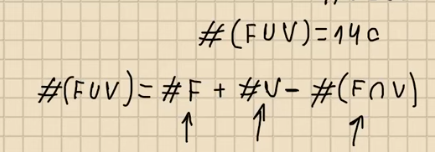 #(FUV)=140
#(FUV)= #F + #V- #(F∩V)
↑ ↑ ↑